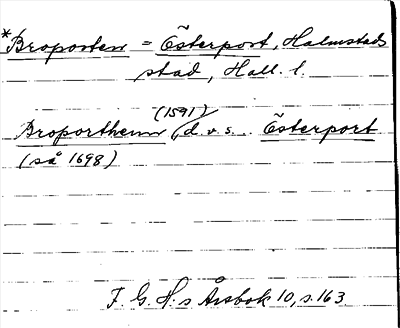 *Broporten = Österport, Halmstads
stad, Hall. l.
(1591)
Broporthenn, d.v.s. Österport
(så 1698)
F. G. H:s Årsbok 10, s. 163